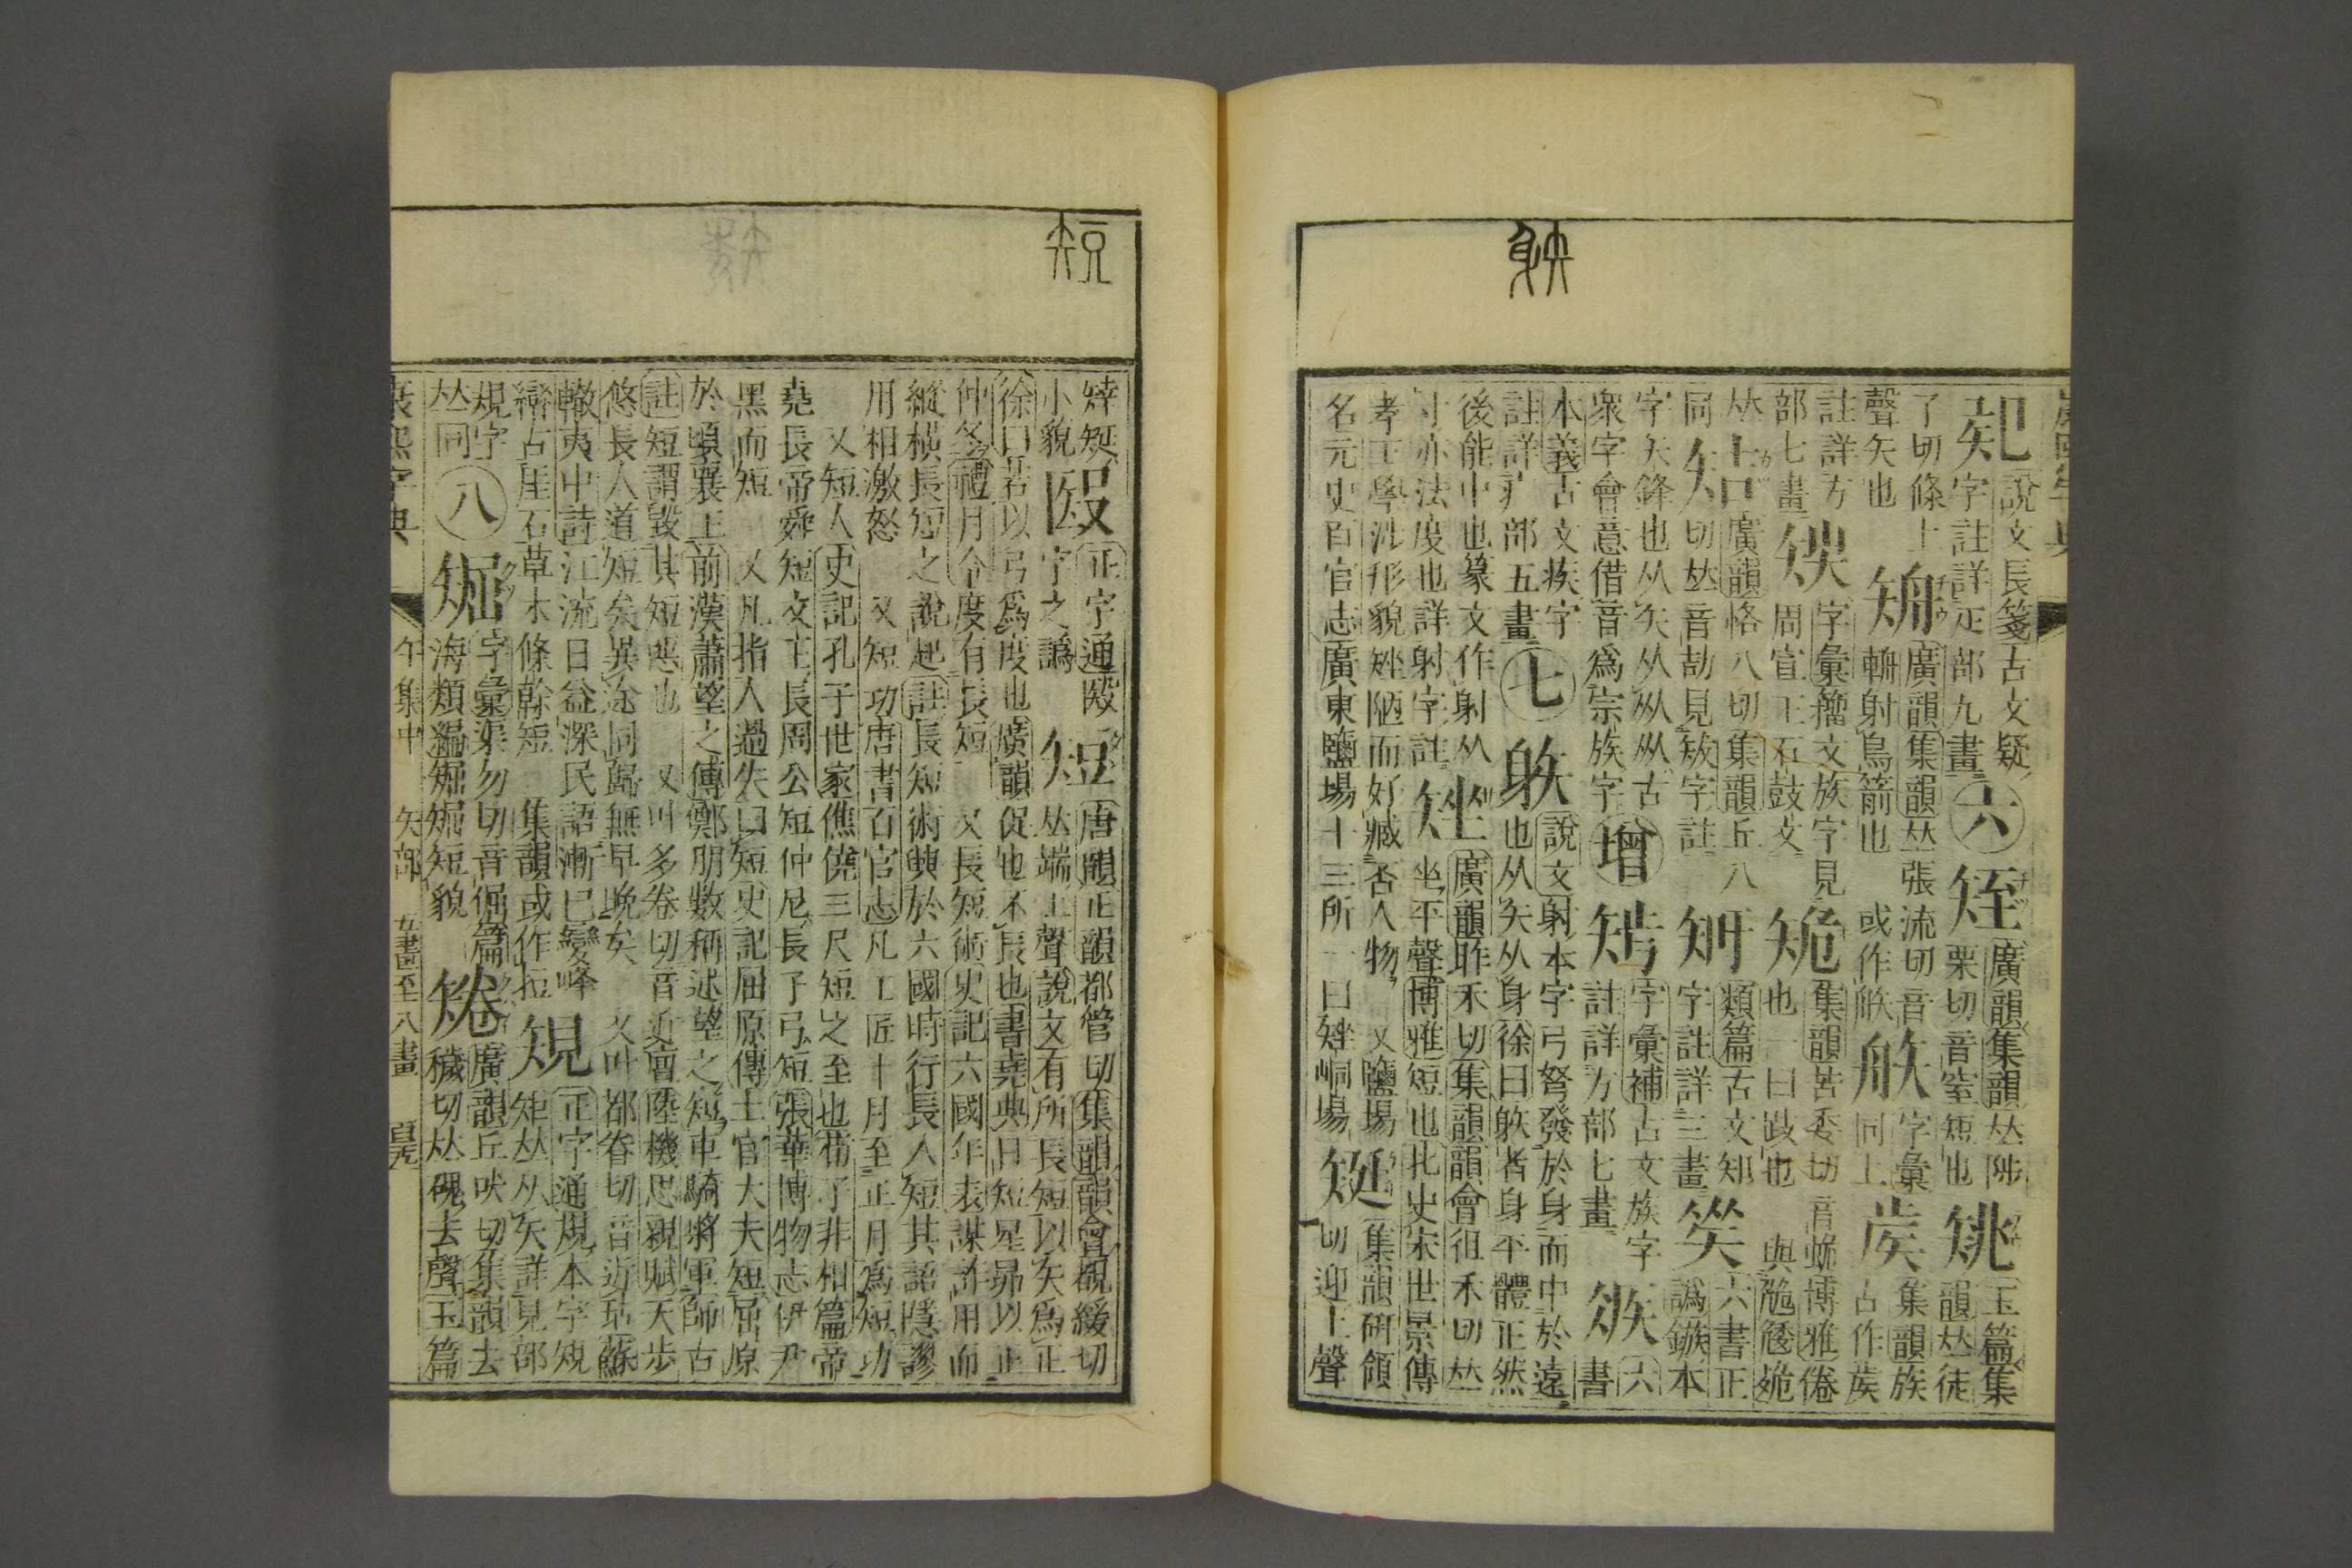 說文長箋古文疑字註詳疋部九畫 六 廣韻集韻𠀤陟栗切音窒短也 玉篇集韻𠀤徒
了切條上聲矢也 廣韻集韻𠀤張流切音輈射鳥箭也 或作 字彙同上 集韻族古作
註詳方部七畫 字彙籀文族字見周宣王石鼓文 集韻苦委切音 博雅 也一曰 也 與
𠀤同 廣韻恪八切集韻丘八切𠀤音劼見 字註 類篇古文矧字註詳三畫 六書正譌鏃本
字矢鋒也从矢从㫃㫃古衆字會意借音爲宗族字 增 字彙補古文族字註詳方部七畫 六書
本義古文疾字註詳疒部五畫 七 䠶 說文射本字弓弩發於身而中於遠也从矢从身徐曰䠶者身平體正然
後能中也篆文作射从寸亦法度也詳射字註 矬 廣韻昨禾切集韻韻會徂禾切𠀤坐平聲博雅短也北史宋世景傳
孝王學涉形貌矬陋而好臧否人物 又鹽場名元史百官志廣東鹽場十三所一曰矬峒場 集韻研領切迎上聲
小貌 正字通毆字之譌 短 唐韻正韻都管切集韻韻會覩緩切𠀤端上聲說文有所長短以矢爲正
徐曰若以弓爲度也廣韻促也不長也書堯典日短星昴以正仲冬禮月令度有長短 又長短術史記六國年表謀詐用而
縱橫長短之說起註長短術興於六國時行長入短其語隱謬用相激怒 又短功唐書百官志凡工匠十月至正月爲短功
又短人史記孔子世家僬僥三尺短之至也荀子非相篇帝堯長帝舜短文王長周公短仲尼長子弓短張華博物志伊尹
黑而短 又凡指人過失曰短史記屈原傳上官大夫短屈原於頃襄王前漢蕭望之傳鄭朋數稱述望之短車騎將軍師古
註短謂毀其短惡也 又叶多卷切音近亶陸機思親賦天步悠長人道短矣異途同歸無早晚矣 又叶都眷切音近玷蘇
轍夷中詩江流日益深民語漸已變峰巒古崖石草木條幹短 集韻或作 規 正字通規本字規矩𠀤从矢詳見部
規字𠀤同 八 字彙渠勿切音倔篇海類編 短貌 廣韻丘吠切集韻去穢切𠀤 去聲玉篇
康熙字典 午集中 矢部 五畫至八畫